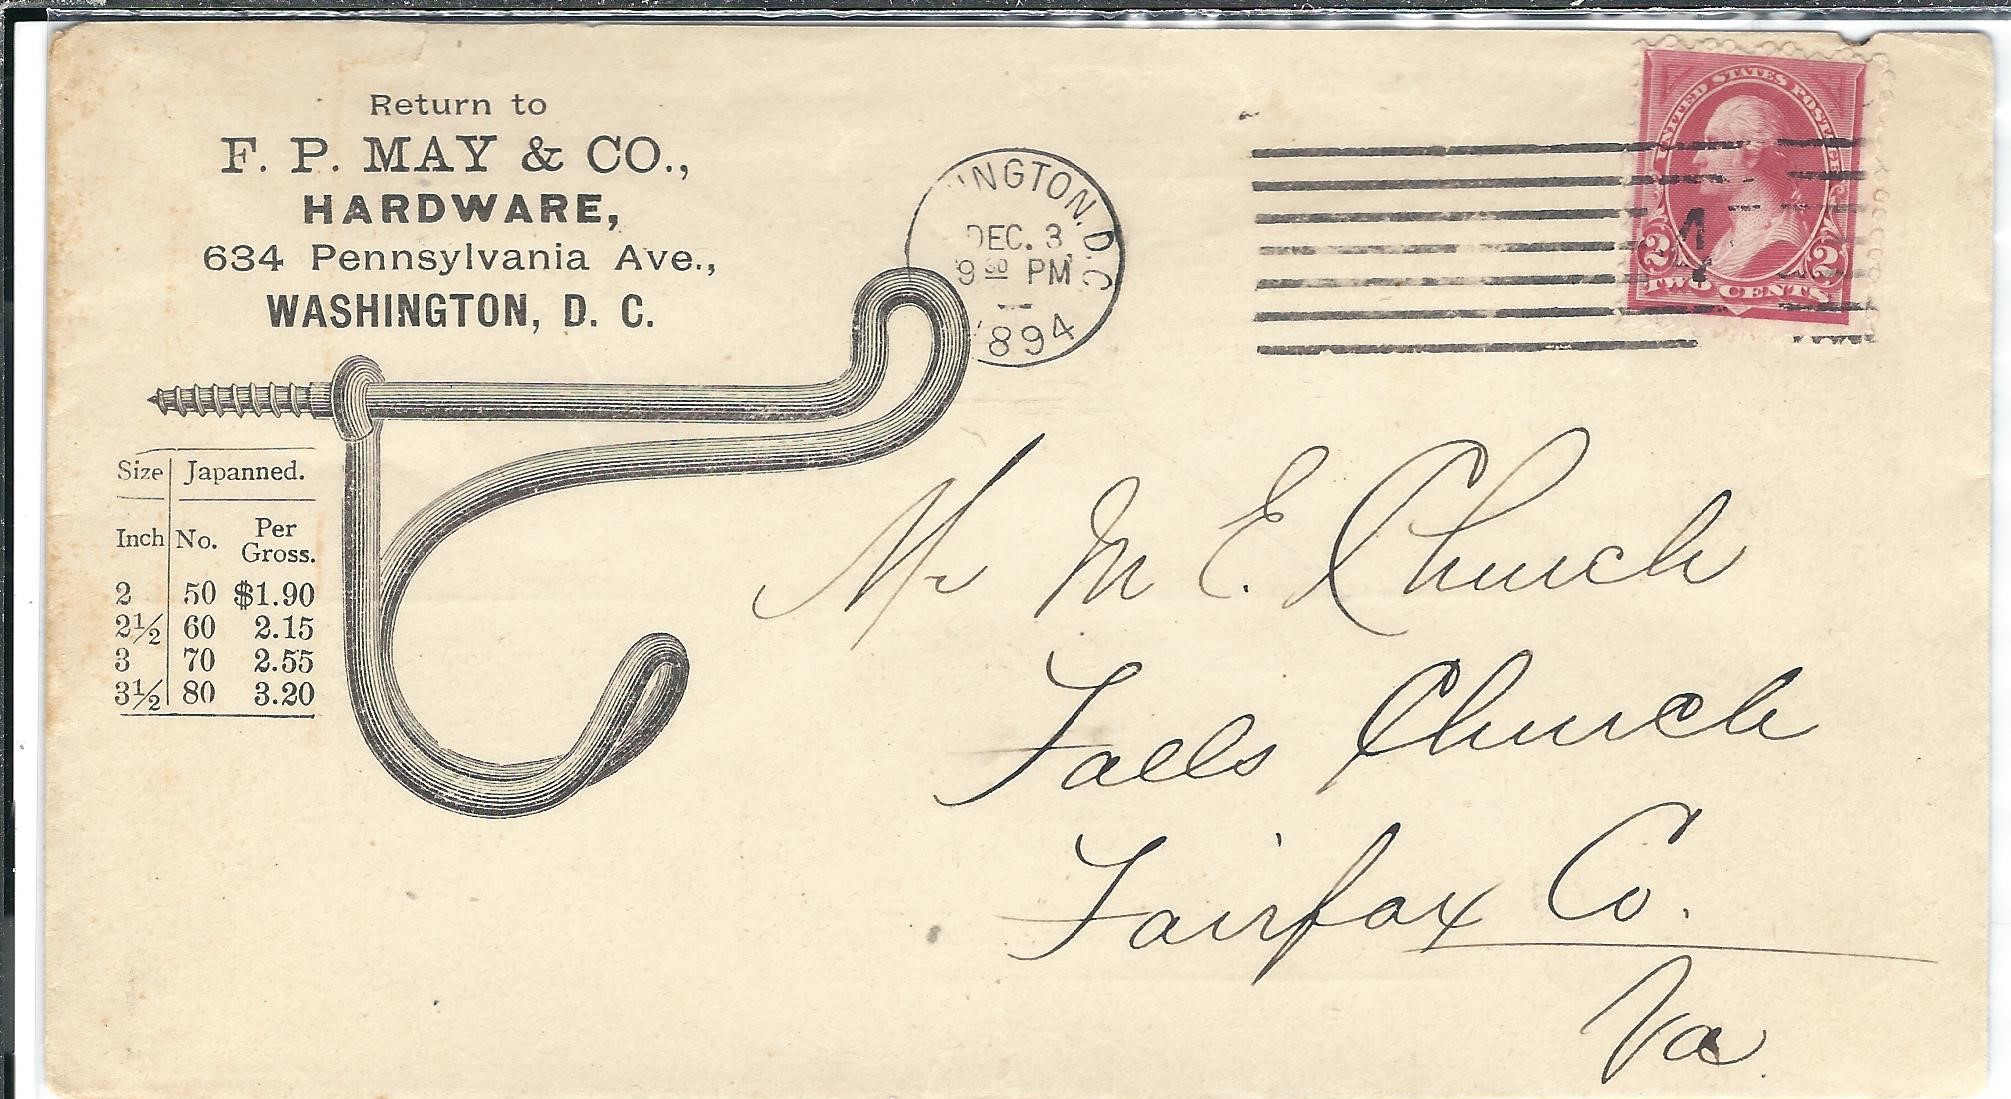 Return to
F. P. MAY & CO.,
HARDWARE,
634 Pennsylvania Ave.,
WASHINGTON, D. C.
INGTON, D.C
DEC. 3
9 30 PM
1894
UNITED STATES POSTAGE
4
2 2
TWO CENTS
Size Japanned.
Inch No. Per Gross.
2 50 $1.90
2½ 60 2.15
3 70 2.55
3½ 80 3.20
Mr M E. Church
Falls Church
Fairfax Co.
Va.